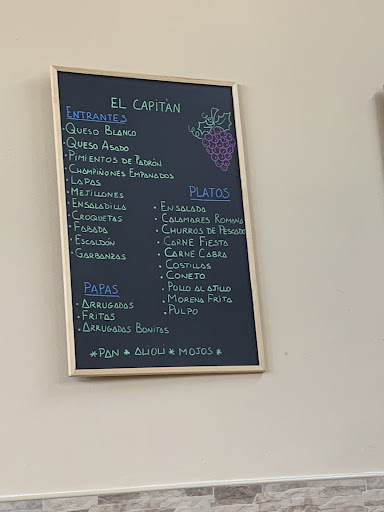 EL CAPITÁN
ENTRANTES
· QUESO BLANCO
· QUESO ASADO
· PIMIENTOS DE PADRÓN
· CHAMPIÑONES EMPANADOS
· LAPAS
· MEJILLONES
· ENSALADILLA
· CROQUETAS
· FABADA
· ESCALDÓN
· GARBANZAS
PLATOS
· ENSALADA
· CALAMARES ROMANA
· CHURROS DE PESCADO
· CARNE FIESTA
· CARNE CABRA
· COSTILLAS
· CONEJO
· POLLO AL AJILLO
· MORENA FRITA
· PULPO
PAPAS
· ARRUGADAS
· FRITAS
· ARRUGADAS BONITAS
* PAN * ALIOLI * MOJOS *